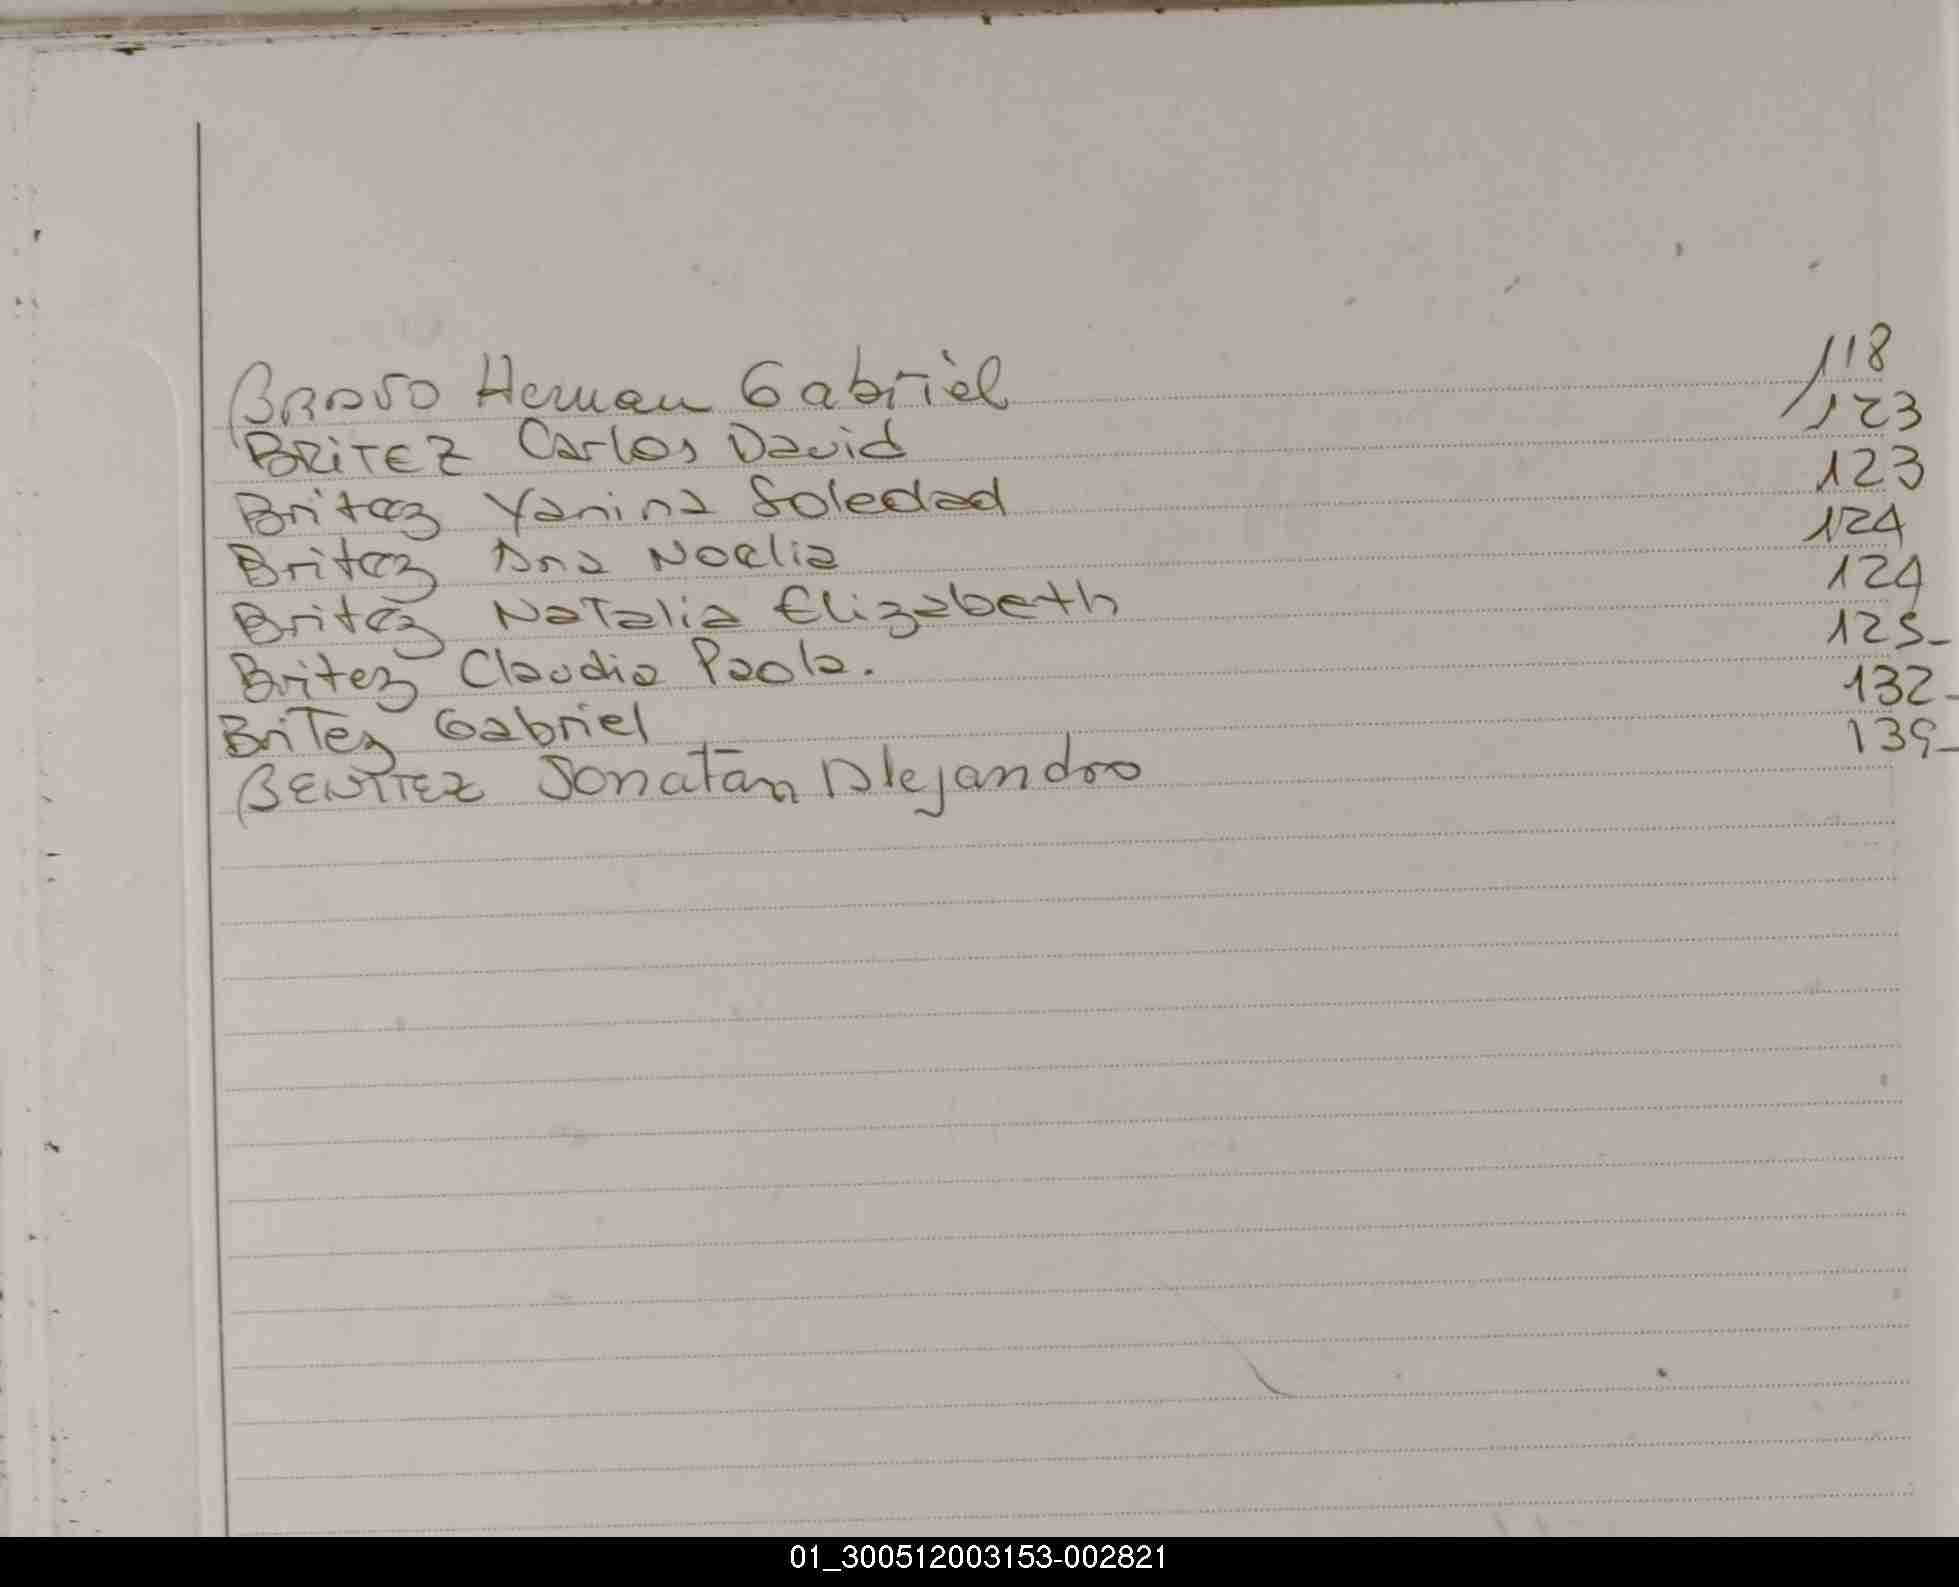 BRAVO Hernan Gabriel 118
BRITEZ Carlos David 123
Britez Yanina Soledad 123
Britez Ana Noelia 124
Britez Natalia Elizabeth 124
Britez Claudia Paola. 125-
BriTez Gabriel 132-
BENITEZ Jonatan Alejandro 139-
01_300512003153-002821